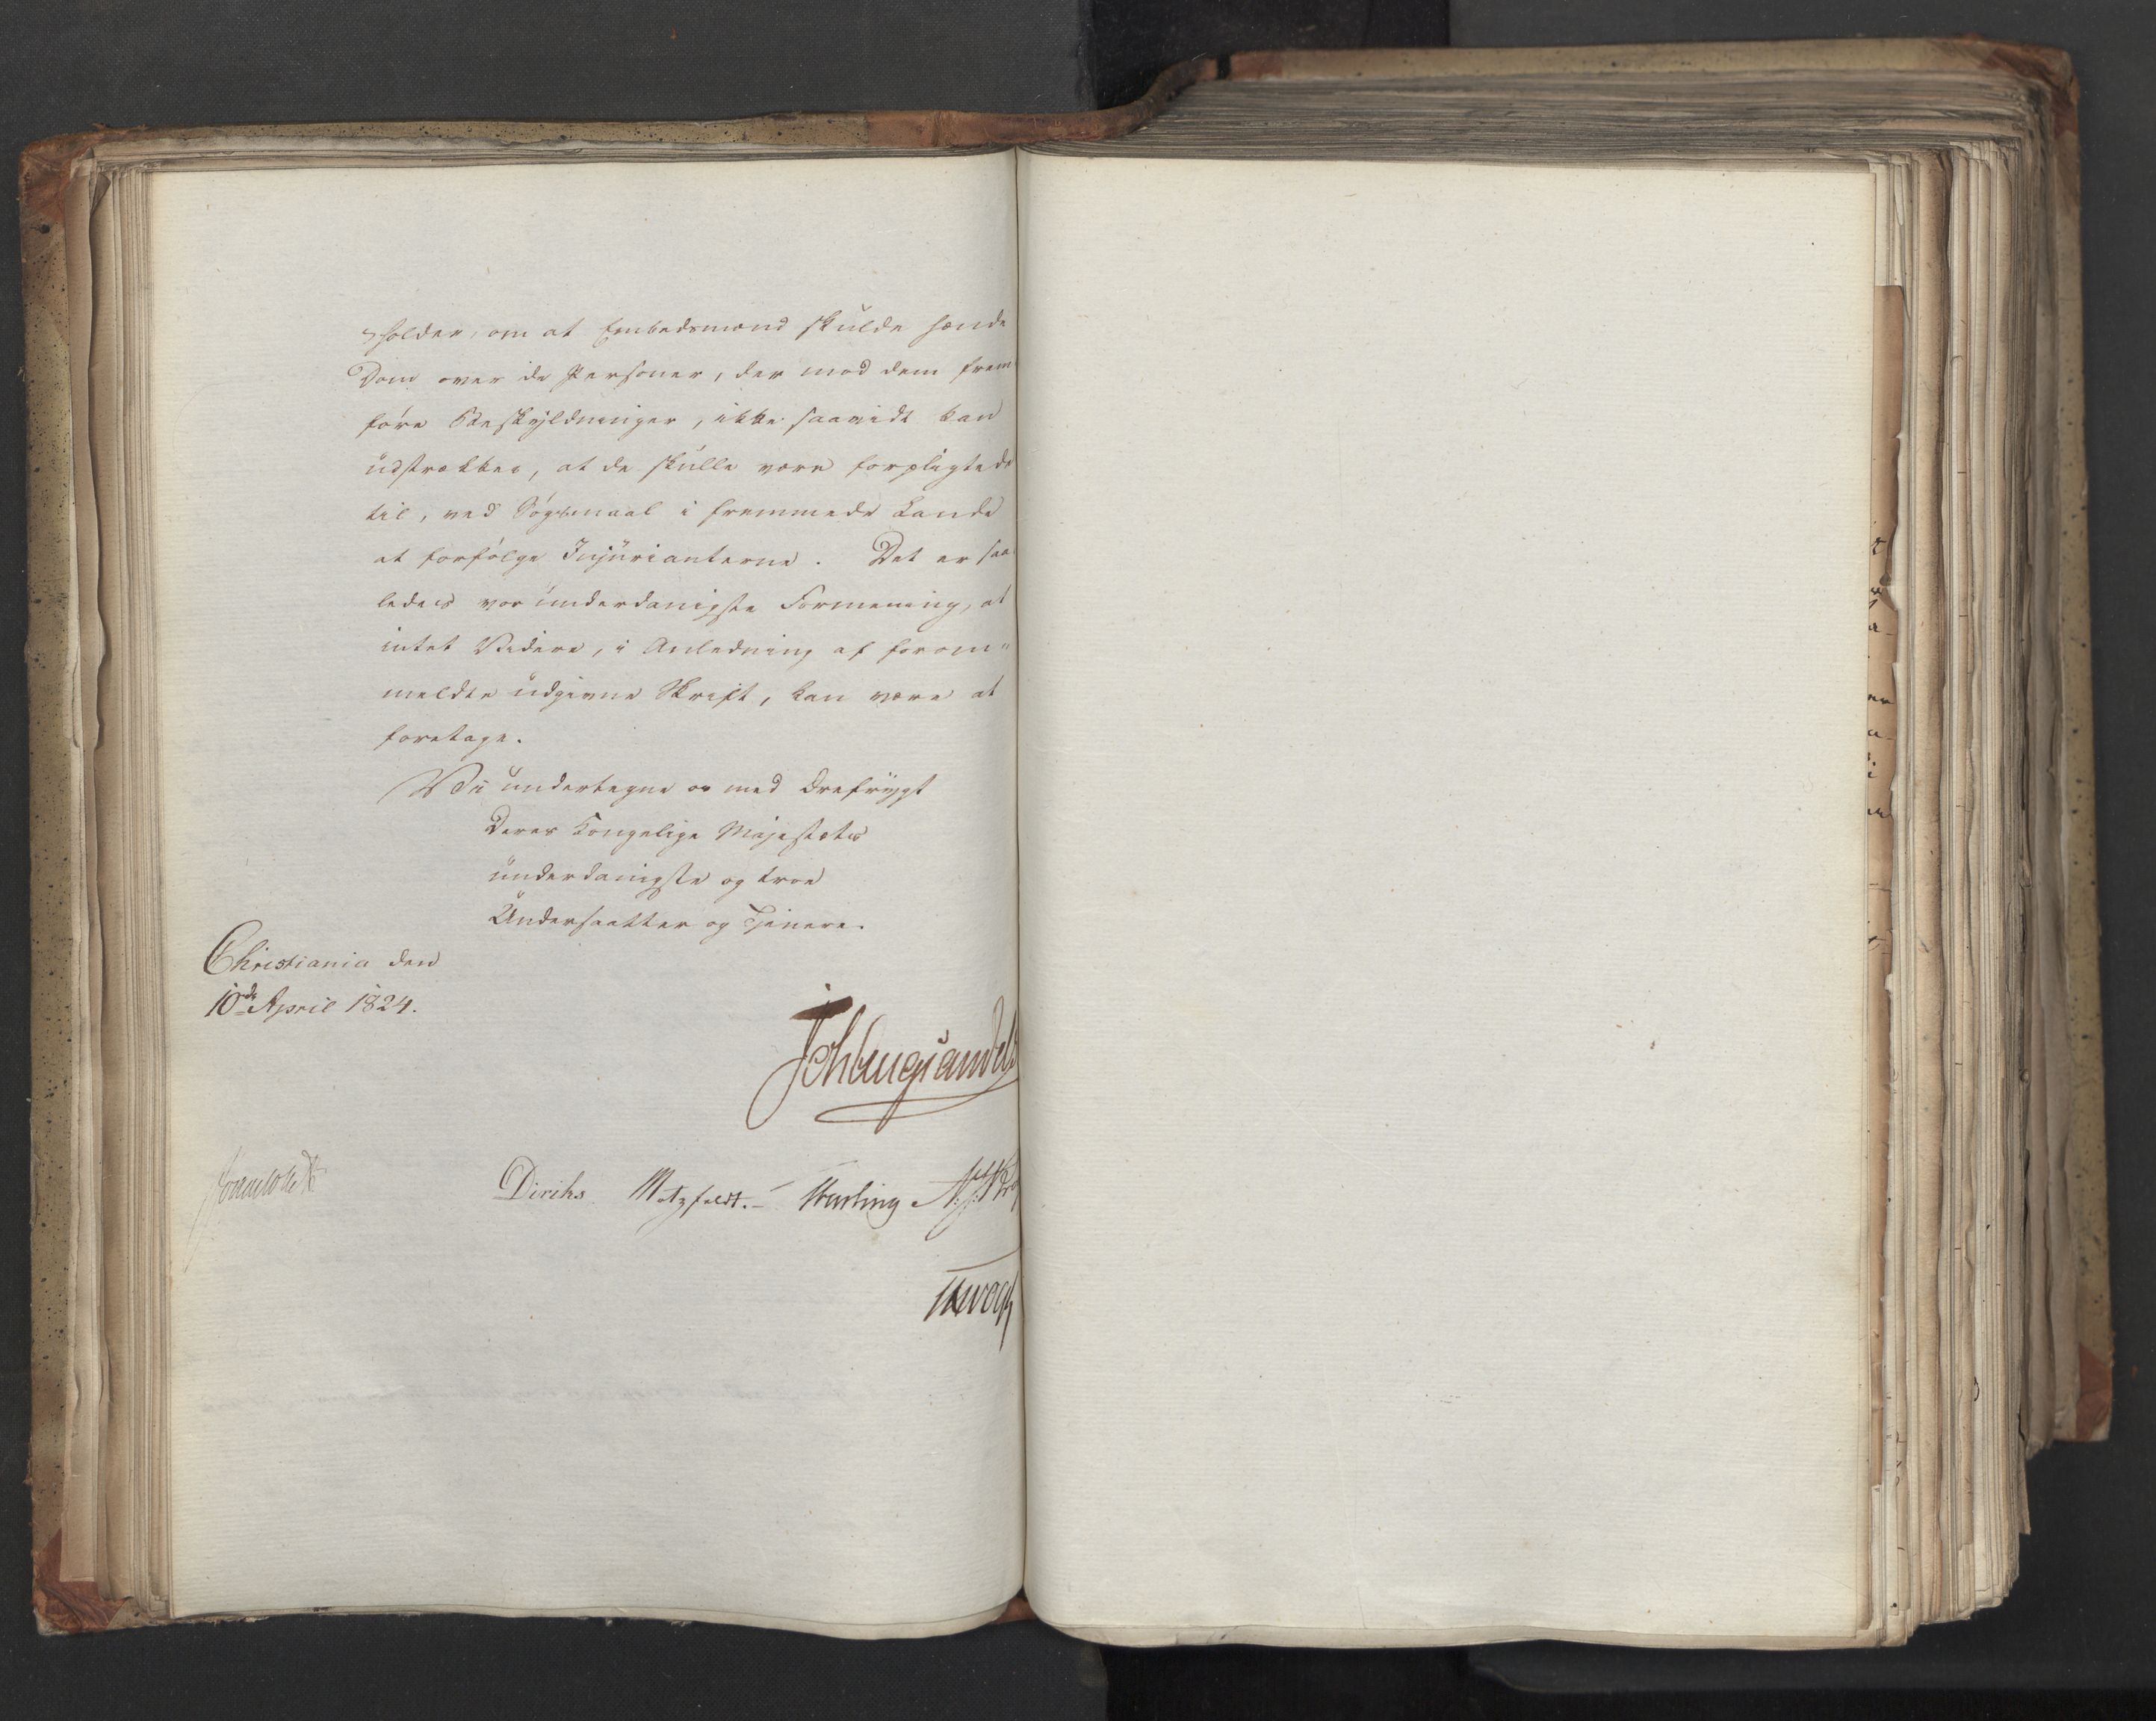 holder, om at Embedsmænd skulde hænde
Dom over de Personer, der mod dem frem
føre Beskyldninger, ikke saavidt kan
udstrækkes, at de skulle være forpligtede
til, ved Søgsmaal i fremmede Lande
at forfølge Injurianterne. Det er saa
ledes vor underdanigste Formening, at
intet Videre, i Anledning af forom"
meldte udgivne Skrift, kan være at
foretage.
Vi undertegne os med Ærefrygt
Deres Kongelige Majestæts
underdanigste og troe
Undersaatter og Tjenere.
Christiania den
10de April 1824.
Joh Aug Sandels
Diriks Motzfeldt. Krebting